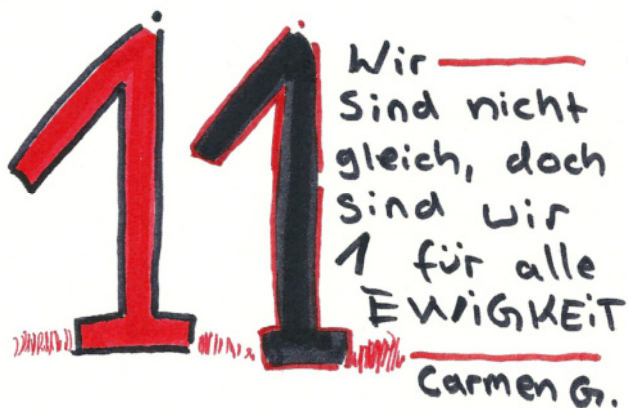 11
Wir
sind nicht
gleich, doch
sind wir
1 für alle
EWiGKEiT
Carmen G.